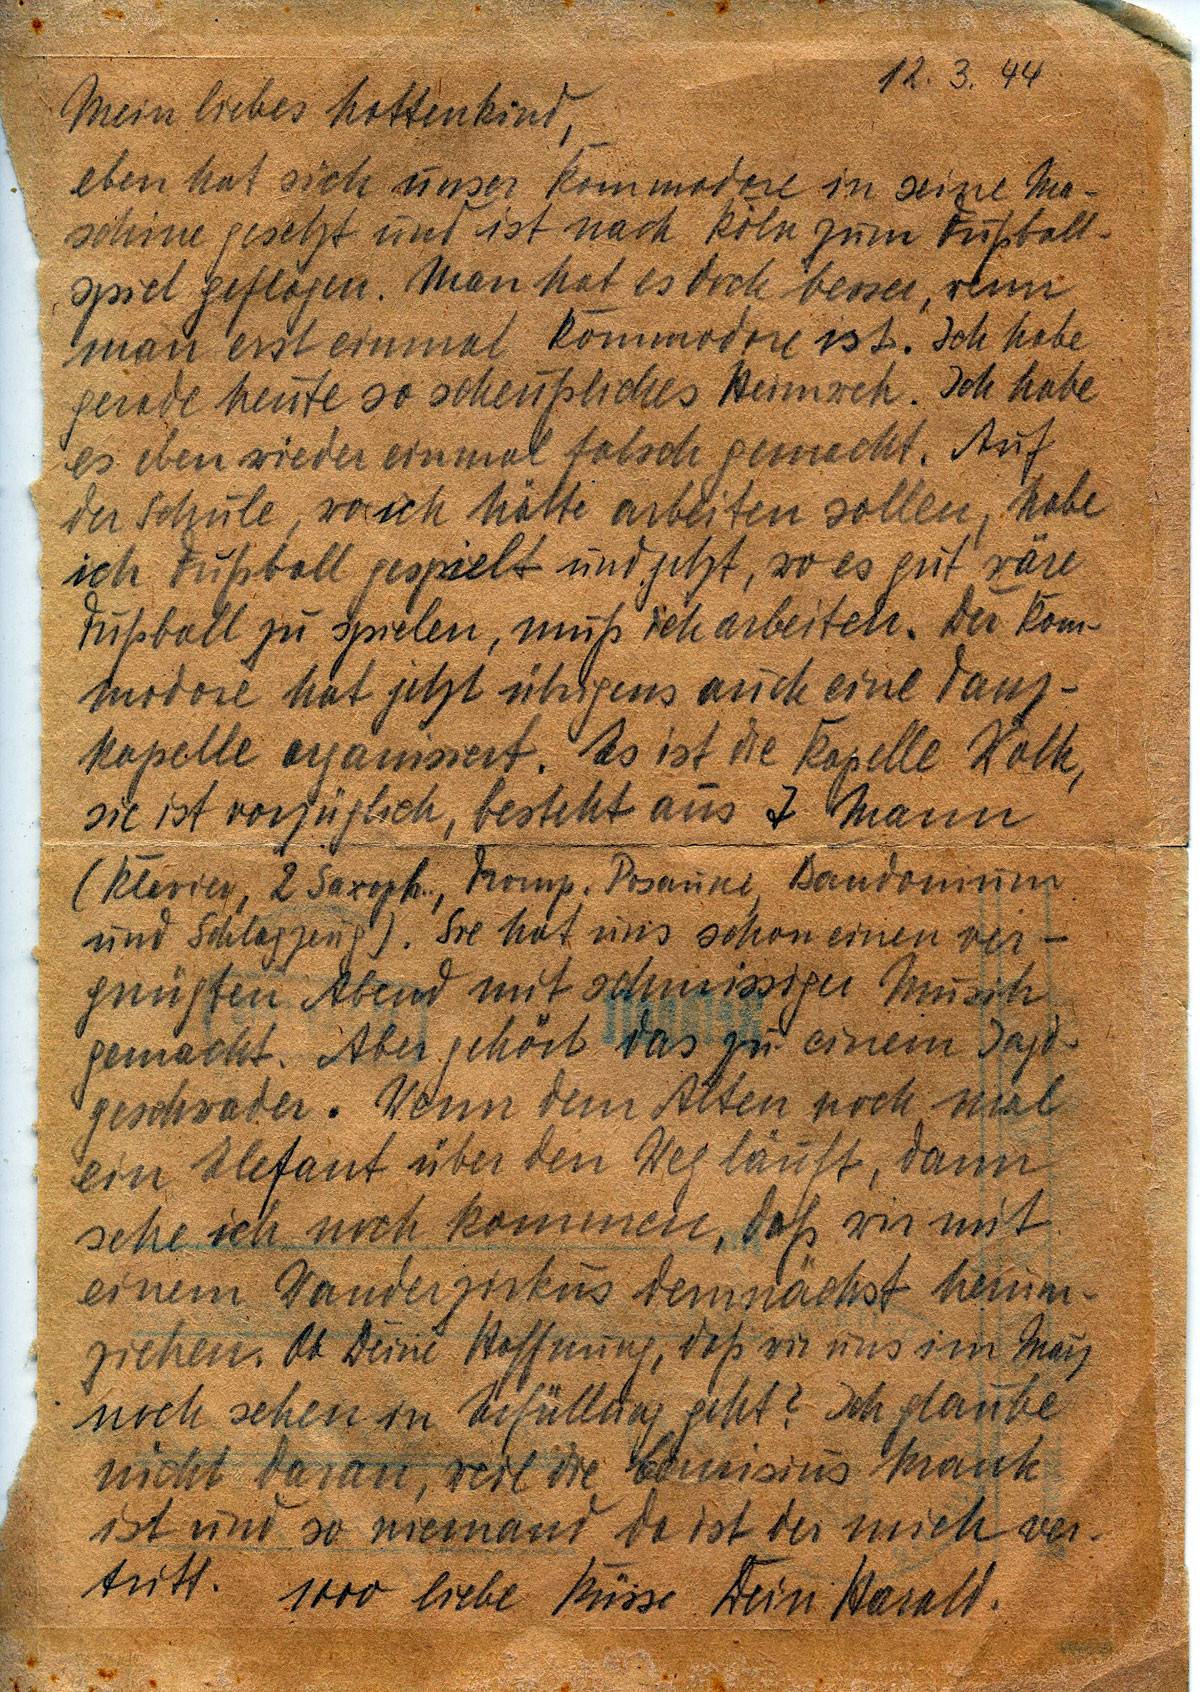 12. 3. 44
Mein liebes Hottenkind,
eben hat sich unser Kommodore in seine Ma-
schine gesetzt und ist nach Köln zum Fußball-
spiel geflogen. Man hat es doch besser, wenn
man erst einmal Kommodore ist. Ich habe
gerade heute so scheußliches Heimweh. Ich habe
es eben wieder einmal falsch gemacht. Auf
der Schule, wo ich hätte arbeiten sollen, habe
ich Fußball gespielt und jetzt, wo es gut wäre
Fußball zu spielen, muß ich arbeiten. Der Kom-
modore hat jetzt übrigens auch eine Tanz-
kapelle organisiert. Es ist die Kapelle
sie ist vorzüglich, besteht aus 7 Mann
(Klavier, 2 Saxoph., Tromp. Posaune, Bandonium
und Schlagzeug). Sie hat uns schon einen ver-
gnügten Abend mit schmissiger Musik
gemacht. Aber gehört das zu einem Jagd-
geschwader. Wenn dem Alten noch mal
ein Elefant über den Weg läuft, dann
sehe ich noch kommen, daß wir mit
einem Wanderzirkus demnächst herum-
ziehen. Ob Deine Hoffnung, daß wir uns im März
noch sehen in Erfüllung geht? Ich glaube
nicht daran, weil die krank
ist und so niemand da ist der mich ver-
tritt. 1000 liebe Küsse Dein Harald.